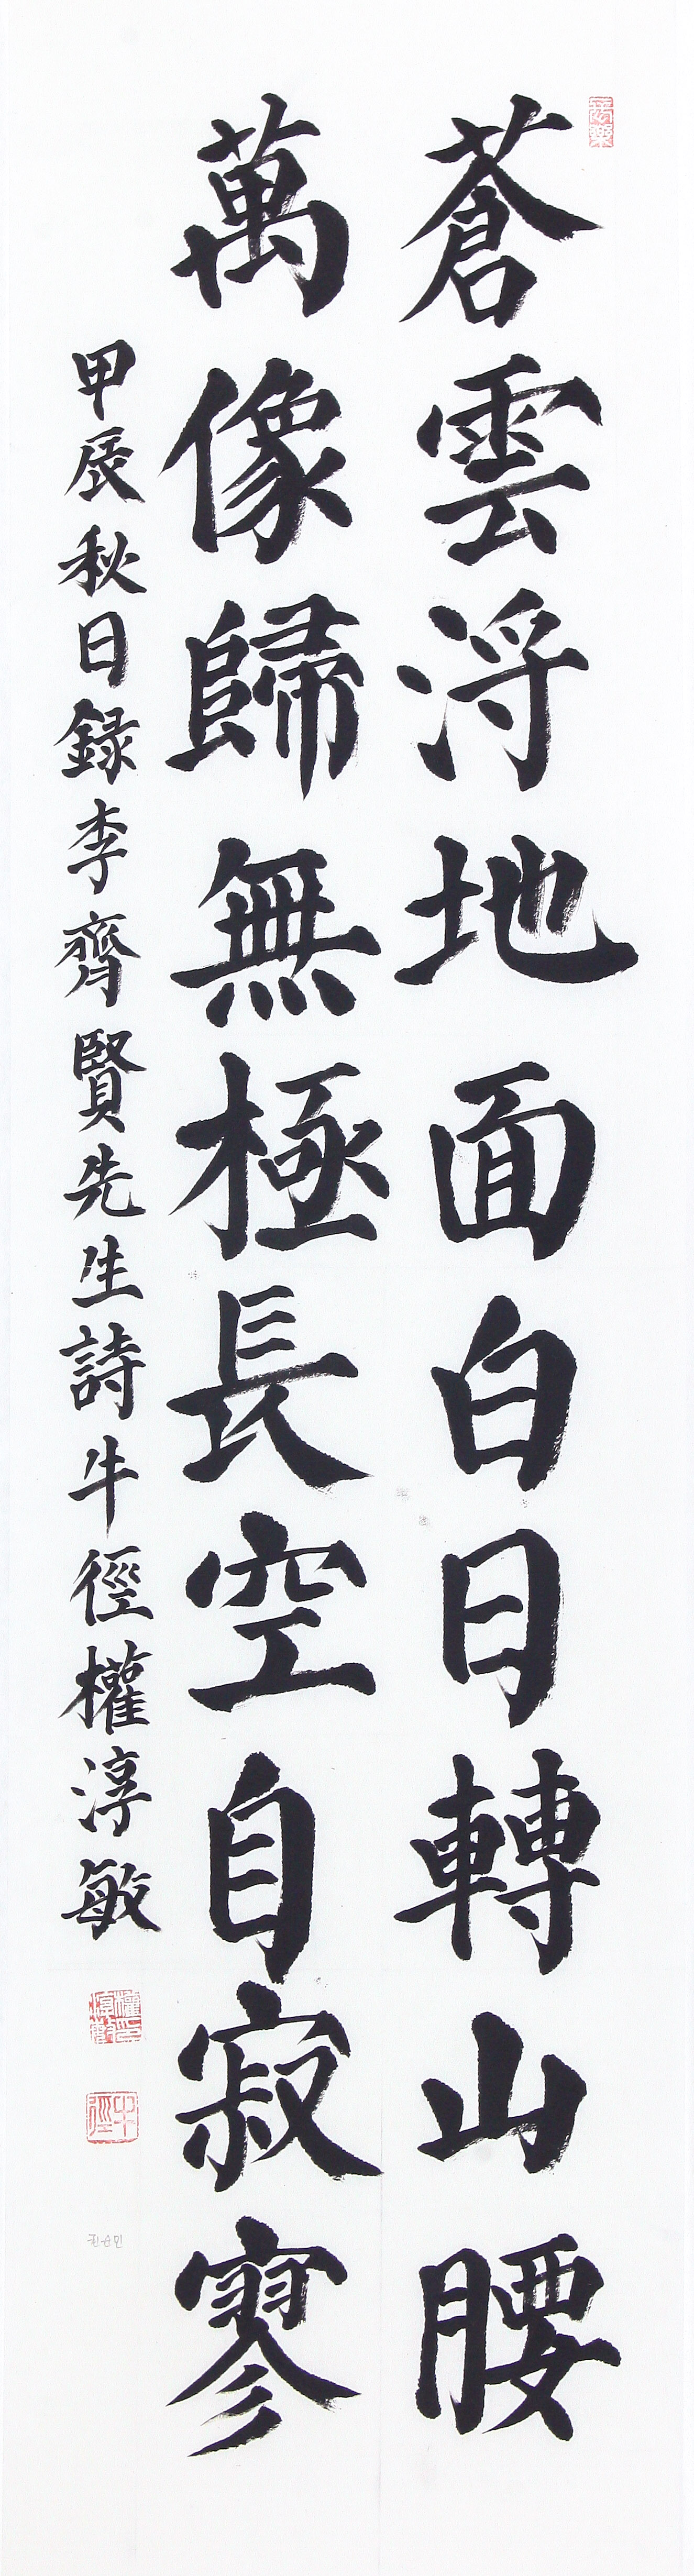 蒼雲浮地面白日轉山腰
萬像歸無極長空自寂寥
甲辰秋日録李齊賢先生詩牛徑權淳敏
牛徑
권순민